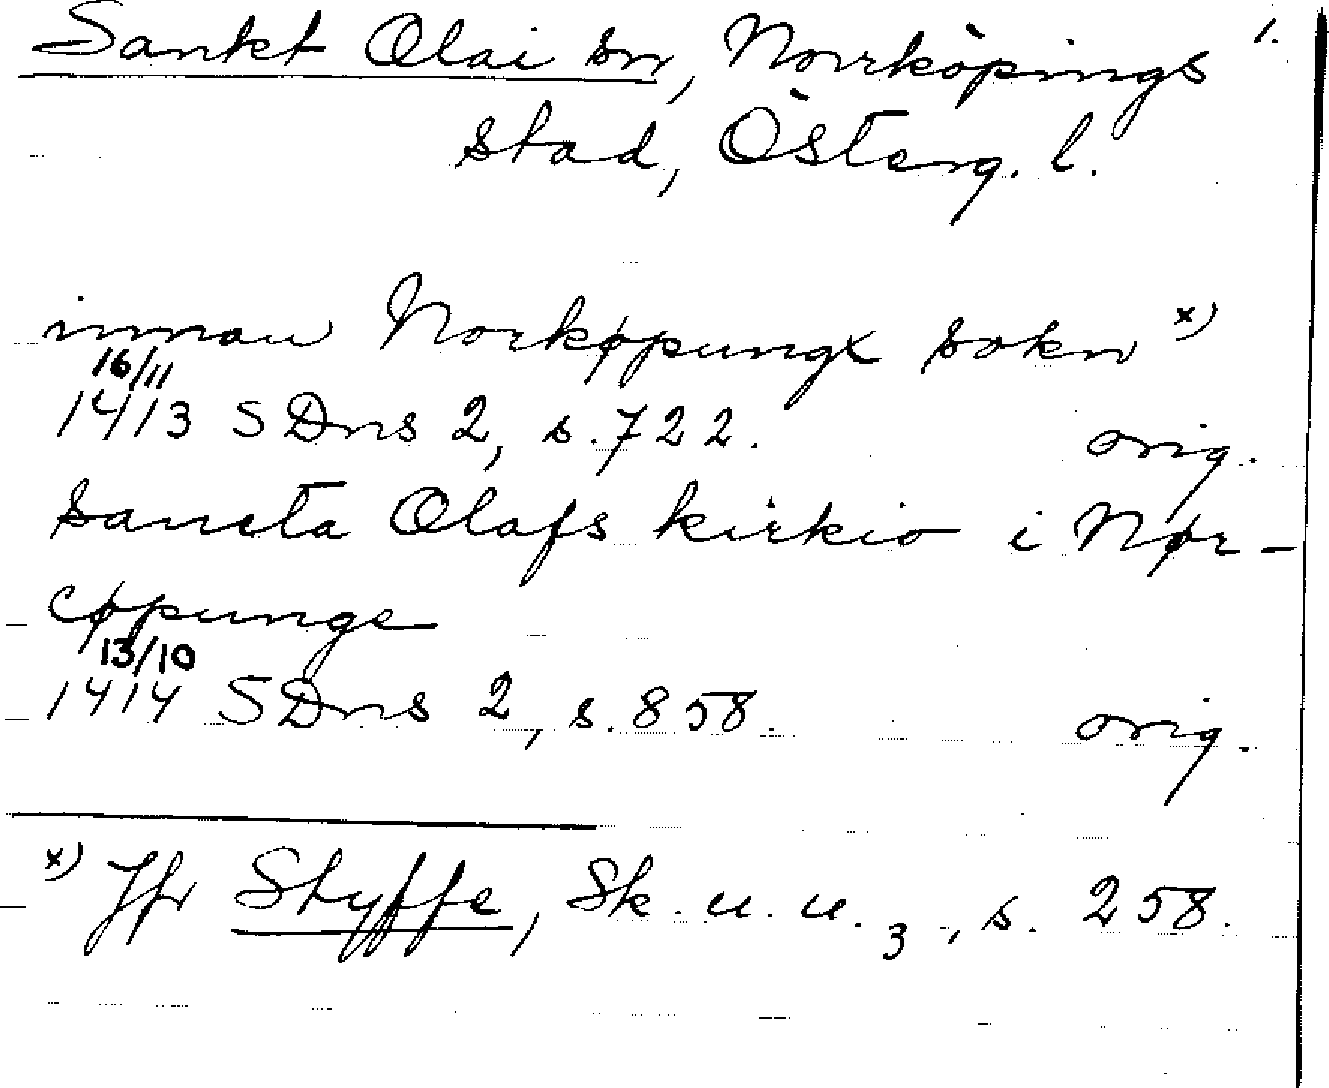 Sankt Olai sn, Norrköpings 1.
stad, Österg. l.
innan Norkøpungx sokn x)
16/11
1413 SDns 2, s. 722. orig.
sancta Olafs kirkio i Nør-
cøpunge
13/10
1414 SDns 2, s. 858. orig.
x) Jfr Styffe, Sk. u. u. 3, s. 258.